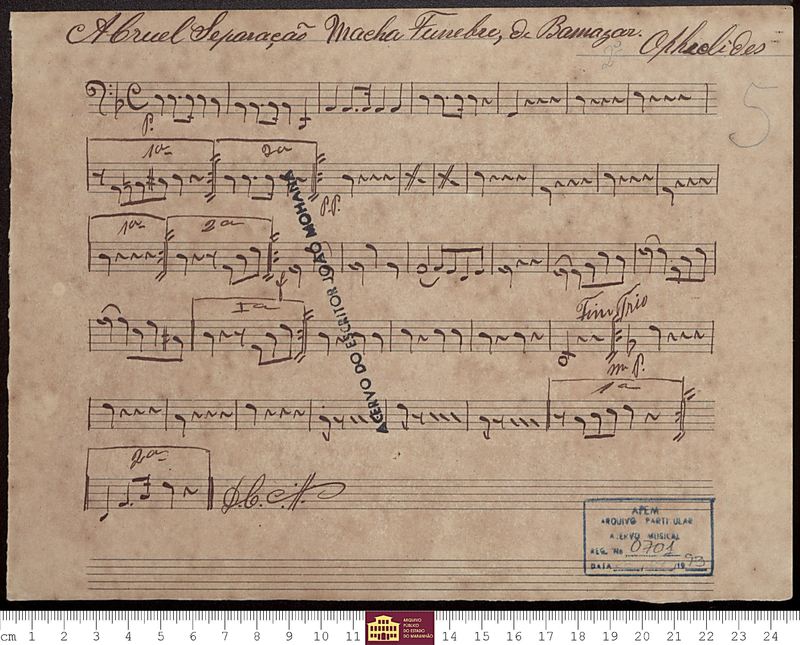 A Cruel Separação Macha Funebre, de Bamazar.
Ophclides
2º
5
p.
1a 2a
P.P.
1a 2a
1a
Fim Trio
m. P.
1a
2a
D.C.
ACERVO DO ESCRITOR JOÃO MOHANA
APEM
ARQUIVO PARTICULAR
ACERVO MUSICAL
REG. Nº 0701
DATA 19 93
cm 1 2 3 4 5 6 7 8 9 10 11 14 15 16 17 18 19 20 21 22 23 24
ARQUIVO
PÚBLICO
DO ESTADO
DO MARANHÃO